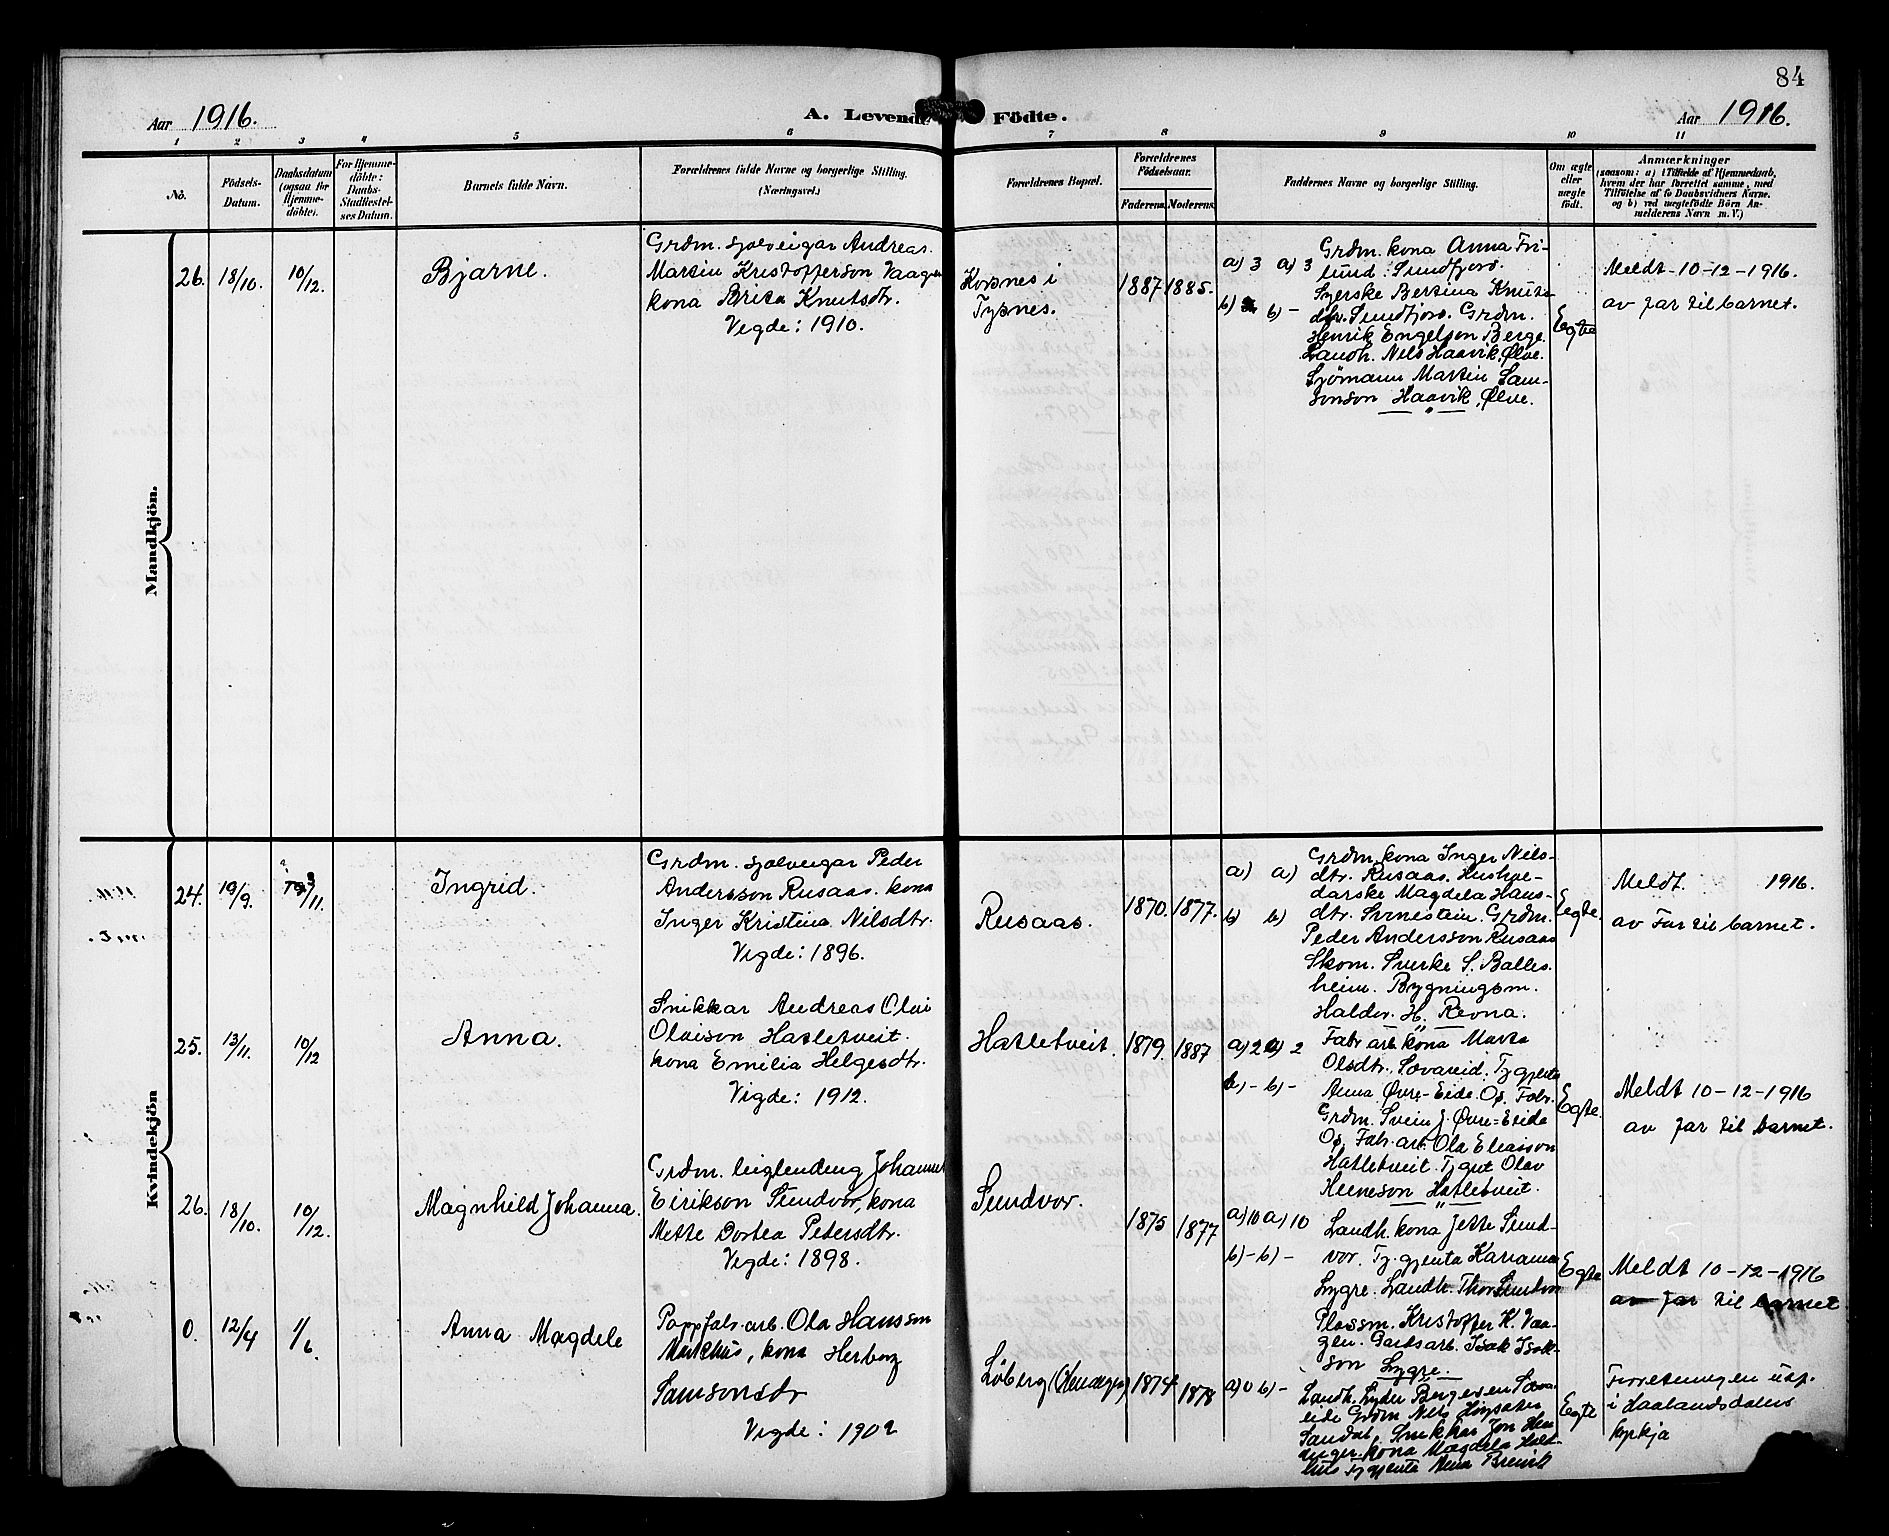 84
Aar 1916.
A. Levende Födte.
Aar 1916.
1 2 3 4 5 6 7 8 9 10 11
No.
Födsels-
Datum.
Daabsdatum
(ogsaa for
Hjemme-
döbte).
For Hjemme-
döbte:
Daabs-
Stadfæstel-
ses Datum.
Barnets fulde Navn.
Forældrenes fulde Navne og borgerlige Stilling.
(Næringsvei.)
Forældrenes Bopæl.
Forældrenes
Födselsaar.
Faderens. Moderens.
Faddernes Navne og borgerlige Stilling.
Om ægte
eller
uægte
födt.
Anmærkninger
(saasom: a) i Tilfælde af Hjemmedaab,
hvem der har forrettet samme, med
Tilföielse af to Daabsvidners Navne.
og b) ved uægtefödte Börn An-
melderens Navn m. V.)
Mandkjön.
26.
18/10.
10/12.
Bjarne.
Grdm. sjølveigar Andreas
Martin Kristofferson Vaage
kona Brita Knutsdtr.
Vigde: 1910.
Korsnes i
Tysnes.
1887
1885.
a) 3 a) 3
b) b) -
Grdm. kona Anna Fri-
lund. Sundfjord.
Syerske Bertina Knuts-
dtr. Sundfjord. Grdm.
Henrik Engelson Berge.
Landh. Nils Haavik, Ølve.
Sjømann Martin Sam-
sonson Haavik, Ølve.
Egte
Meldt 10-12-1916.
av far til barnet.
Kvindekjön
24.
19/9.
/11.
Ingrid.
Grdm. sjølveigar Peder
Andersson Rusaas. kona
Inger Kristina Nilsdtr.
Vigde: 1896.
Rusaas.
1870.
1877.
a) a)
b) b)
Grdm. kona Inger Nils-
dtr. Rusaas. Hushol-
darske Magdela Hans-
dtr. Svinestein. Grdm.
Peder Andersson Rusaas
Skom. Sverke S. Balles-
heim. Bygningsm.
Haldor H. Revna.
Egte.
Meldt. 1916.
av Far til barnet.
25.
13/11.
10/12
Anna.
Snikkar Andreas Olai
Olaison Hatletveit.
kona Emilia Helgesdtr.
Vigde: 1912.
Hatletveit.
1879.
1887
a) 2 a) 2
b) - b) -
Fabr. arb. kona Marta
Olsdtr. Sævareid. Tj. gjenta
Anna Øvre-Eide Os. Fabr.
Grdm. Svein J. Øvre-Eide
Os. Fabr. arb. Ola Eliasson
Hatletveit. Tj. gut Olav
Heineson Hatletveit.
Egte.
Meldt 10-12-1916
av far til barnet.
26.
18/10.
10/12.
Magnhild Johanna.
Grdm. leiglending Johannes
Eirikson Sundvor, kona
Mette Dortea Petersdtr.
Vigde: 1898.
Sundvor.
1875
1877
a) 10 a) 10
b) - b) -
Landh. kona Jette Sund-
vor. Tj. gjenta Karianna
Lygre. Landh. Thor Sundvor
Plassm. Kristoffer K. Vaa-
gen. Gardsarb. Isak Isak-
son Lygre.
Egte
Meldt 10-12-1916
av far til barnet
0.
12/4
1/6.
Anna Magdele
Pappfabr. arb. Ola Hansson
Markhus, kona Herborg
Samsonsdr
Vigde: 1902
Løberg
1874
1878
a) 0 b) -
Landh. Lyder Bergesen Sæva-
eide Grdm Nils
Sandal, Snikkar Jon
kona Magdela
Tj. gjenta
Egte
Forretningen utf.
i Haalandsdalens
kyrkja